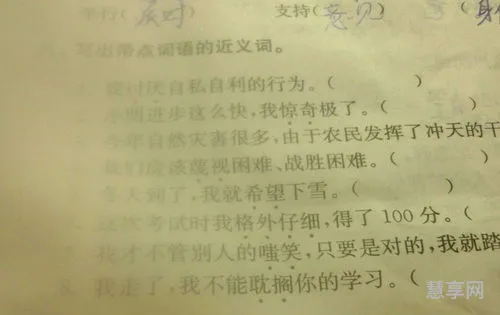 平行(反对) 支持(意见) (身
写出带点词语的近义词。
我讨厌自私自利的行为。( )
小明进步这么快,我惊奇极了。( )
今年自然灾害很多,由于农民发挥了冲天的干
我们应该蔑视困难、战胜困难。( )
冬天到了,我就希望下雪。( )
这次考试时我格外仔细,得了100分。(
我才不管别人的嗤笑,只要是对的,我就踏
8. 我走了,我不能耽搁你的学习。(
慧享网